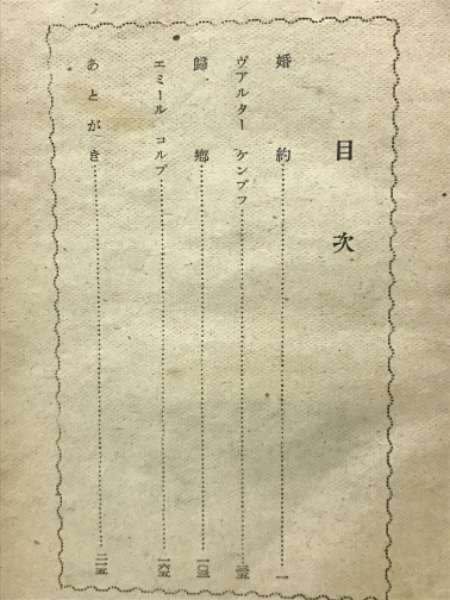 目次
婚約 一
ヴアルター ケンプフ 三五
歸鄕 一〇三
エミール コルブ 一六五
あとがき 二一五